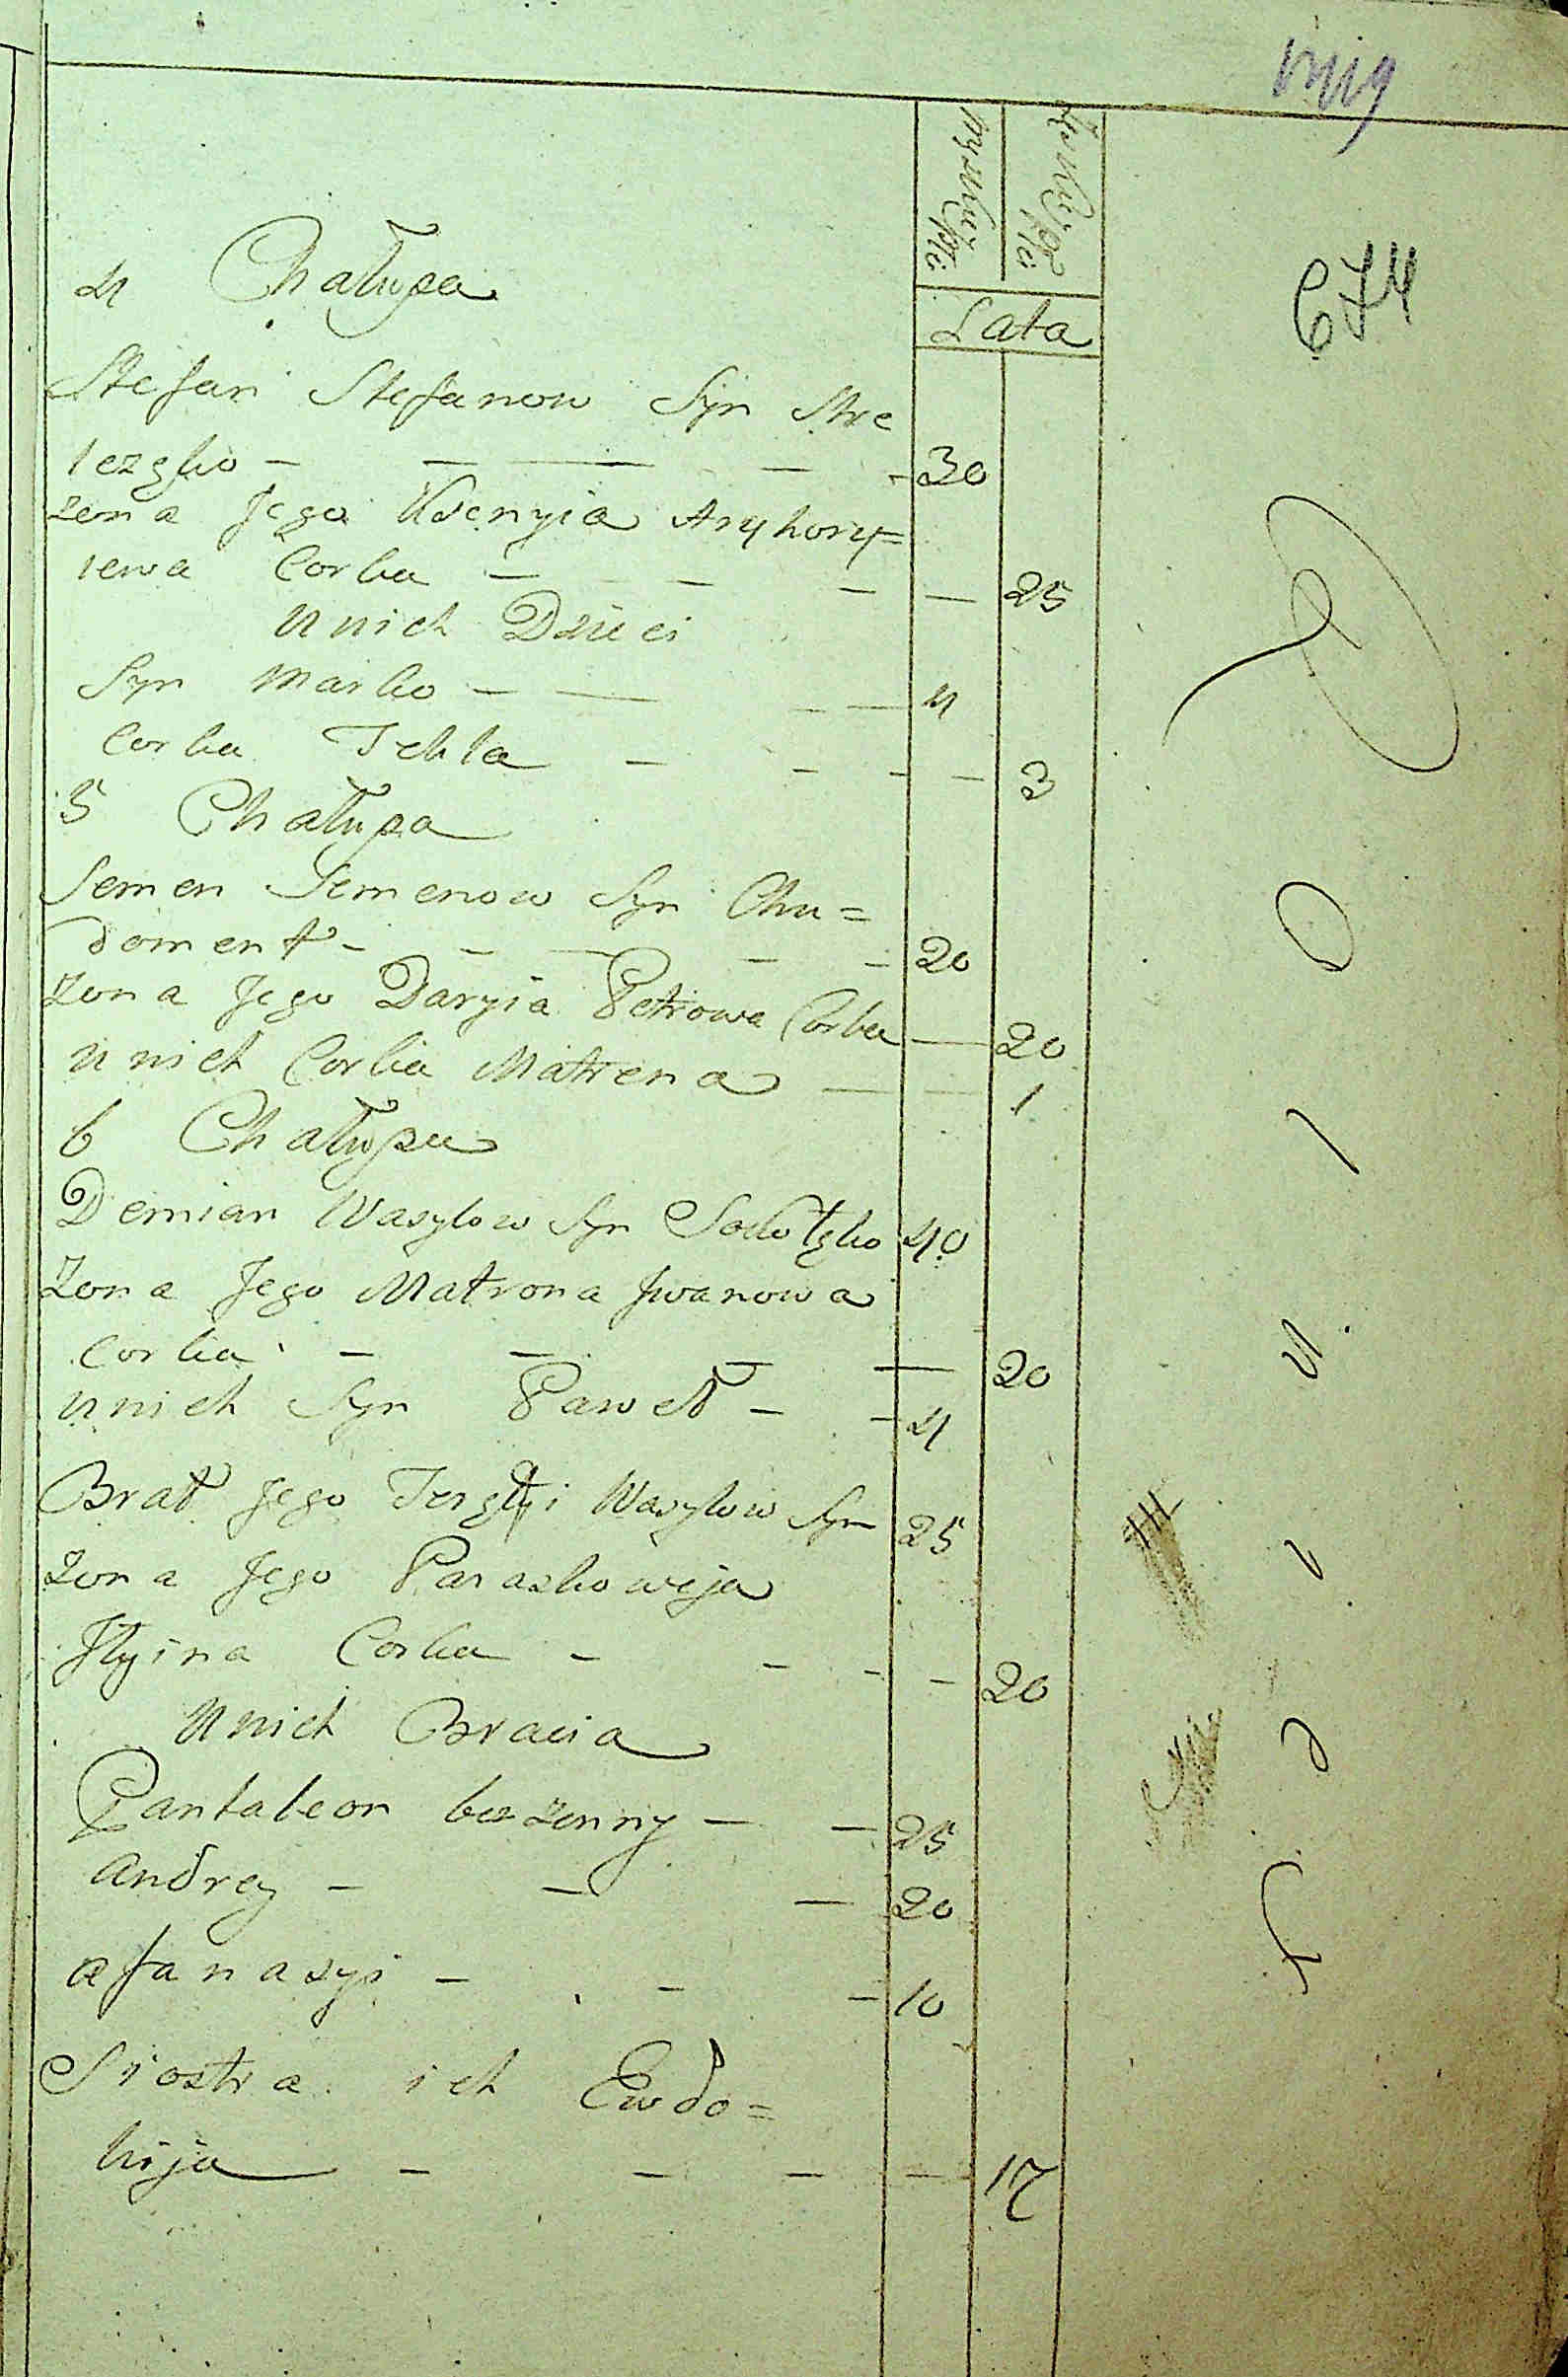 674
Męzkiej płci
Żeńskiej płci
Lata
4 Chałupa
Stefan Stefanow Syn Stre
lezgko — 30
zona Jego Ksenyia Aryhory=
iewa Corka — 25
U nich Dzieci
Syn Marko — 4
Corka Tekla — 3
5 Chałupa
Semen Semenow Syn Chu=
doment — 20
zona Jego Daryia Petrowa Corka — 20
u nich Corka Matrena — 1
6 Chałupa
Demian Wasylow Syn 40
zona Jego Matrona Jwanowa
Corka — 20
u nich Syn Paweł — 4
Brat Jego Wasylow Syn 25
zona Jego Paraskowija
Jłyina Corka — 20
U nich Bracia
Pantaleon bezzenny — 25
Andrey — 20
Afanasyi — 10
Siostra ich Ewdo=
kija — 17